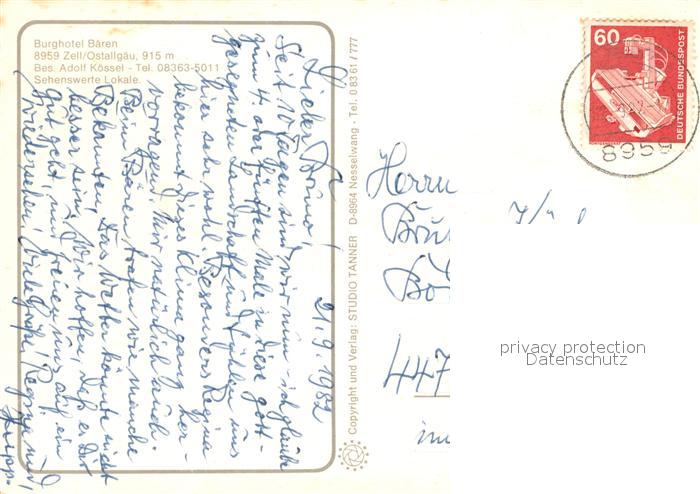 Burghotel Bären
8959 Zell/Ostallgäu, 915 m
Bes. Adolf Kössel - Tel. 08363-5011
Sehenswerte Lokale.
21.9.1982
Lieber Bruno!
Seit 10 Tagen sind wir nun - ich glaube
zum 4. oder fünften Male in diese gott-
gesegneten Landschaft und fühlen uns
hier sehr wohl. Besonders Regina
bekommt dieses Klima ganz her-
vorragend. Mir natürlich auch.
Beim Bären trafen wir manche
Bekannten. Das Wetter könnte nicht
besser sein. Wir hoffen, daß es Dir
gut geht und freuen uns auf ein
Wiedersehen! Viele Grüße! Regina und
Copyright und Verlag: STUDIO TANNER D-8964 Nesselwang · Tel. 08361/777
60
DEUTSCHE BUNDESPOST
8959
Herrn
447
privacy protection
Datenschutz